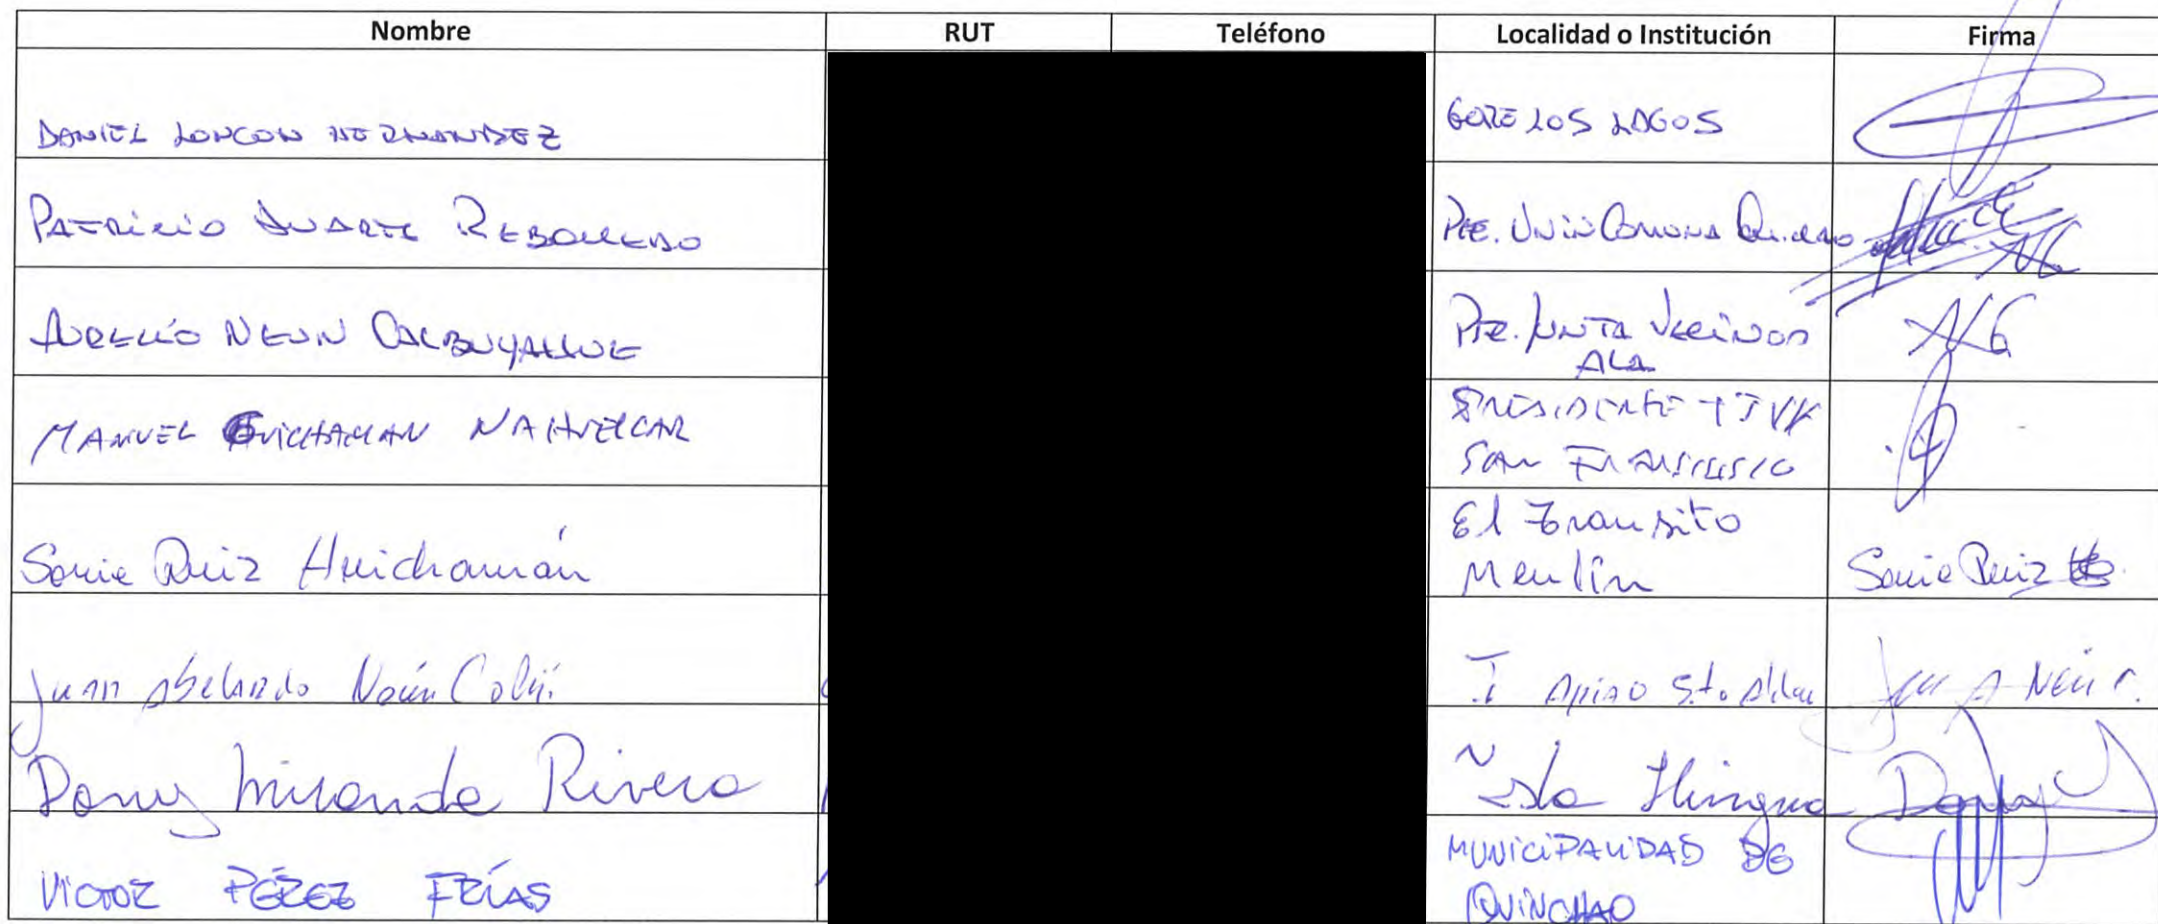 Nombre RUT Teléfono Localidad o Institución Firma
DANIEL LONCON HERNANDEZ GORE LOS LAGOS
PATRICIO DUARTE REBOLLEDO PTE. UNIN COMUNA
AURELIO NEUN PTE. JUNTA VECINOS
ALA
MANUEL GUICHAMAN NAHUELCAR PRESIDENTE JJVV
SAN FRANCISCO
Sonia Ruiz Huichamán El Transito Sonia Ruiz
Meulín
Juan Abelardo Neún Apiao Sto.
Dony Miranda Rivera Isla Llingua Dony
VICTOR PÉREZ FRÍAS MUNICIPALIDAD DE
QUINCHAO